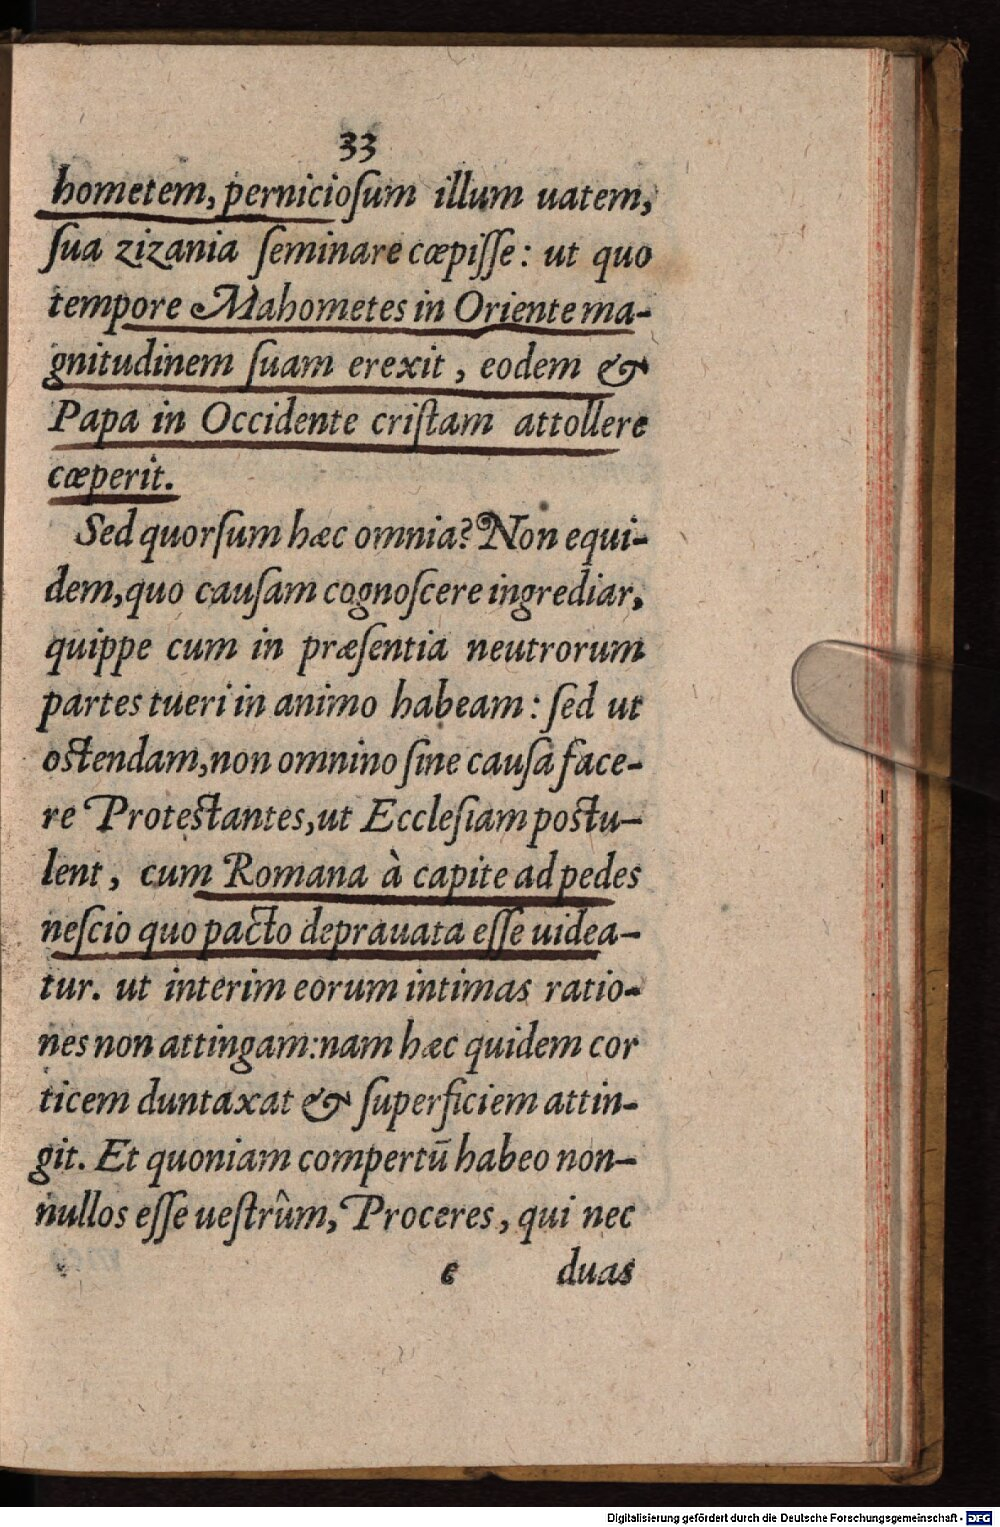 33
hometem, pernicioſum illum uatem,
ſua zizania ſeminare cœpiſſe: ut quo
tempore Mahometes in Oriente ma-
gnitudinem ſuam erexit, eodem &
Papa in Occidente criſtam attollere
cœperit.
Sed quorſum hæc omnia? Non equi-
dem, quo cauſam cognoſcere ingrediar,
quippe cum in præſentia neutrorum
partes tueri in animo habeam: ſed ut
oſtendam, non omnino ſine cauſa face-
re Proteſtantes, ut Eccleſiam poſtu-
lent, cum Romana à capite ad pedes
neſcio quo pacto deprauata eſſe uidea-
tur. ut interim eorum intimas ratio-
nes non attingam: nam hæc quidem cor
ticem duntaxat & ſuperficiem attin-
git. Et quoniam compertū habeo non-
nullos eſſe ueſtrûm, Proceres, qui nec
e duas
Digitalisierung gefördert durch die Deutsche Forschungsgemeinschaft - DFG